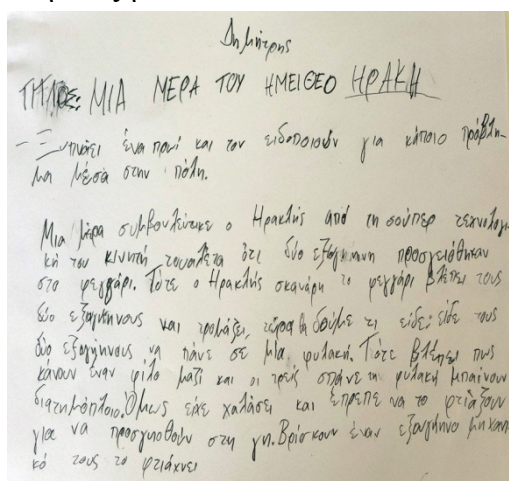 Δημήτρης
ΤΙΤΛΟΣ: ΜΙΑ ΜΕΡΑ ΤΟΥ ΗΜΕΙΘΕΟ ΗΡΑΚΗ
- Ξυπνάει ένα πρωί και τον ειδοποιούν για κάποιο πρόβλη-
μα μέσα στην πόλη.
Μια μέρα συμβουλεύτικε ο Ηρακλής από τη σούπερ τεχνολογι
κή του κινητή τουαλέτα ότι δύο εξωγήινη προσγειόθηκαν
στο φεγγάρι. Τότε ο Ηρακλής σκανάρη το φεγγάρι βλέπει τους
δύο εξωγήινους και τρομάζει, τώρα θα δούμε τι είδε; είδε τους
δύο εξωγήινους να πάνε σε μία φυλακή. Τότε βλέπει πως
κάνουν έναν φίλο μαζί και οι τρείς σπάνε τη φυλακή μπαίνουν
διαστημόπλοιο. Όμως είχε χαλάσει και έπρεπε να το φτιάξουν
για να προσγηοθούν στη γη. Βρίσκουν έναν εξωγήινο μηχανι
κό τους το φτιάχνει